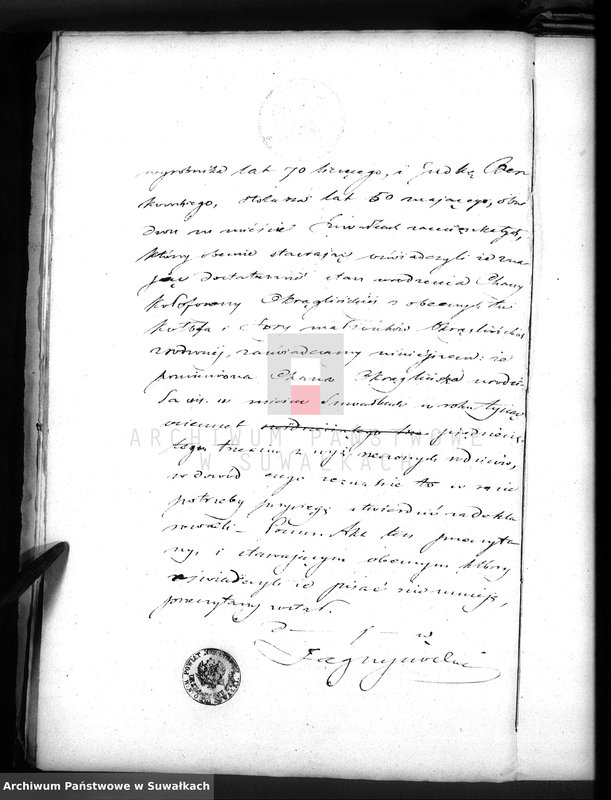 wyrobnika lat 70 liczącego, i Judką
kowskiego, stolarza lat 60 mającego, obu
dwu w mieście Suwałkach zamieszkałych,
którzy obecnie stawając oświadczyli iż zna
jąc dostatecznie stan urodzenia Chany
Okrąglińskiej z obecnych tu
i małżonków Okrąglińskich
zrodzonej, zaświadczamy niniejszem: iż
pomieniona Chana Okrąglińska urodzi
ła się w mieście Suwałkach w roku tysiąc
ośmset
tym trzecim z wyż rzeczonych rodziców,
w dowód czego zeznanie to w razie
potrzeby przysięgą stwierdzić zadekla
rowali. – Poczem Akt ten przeczyta
ny, i stawającym obecnym którzy
oświadczyli iż pisać nie umieją,
przeczytany został.
ARCHIWUM PAŃSTWOWE
W SUWAŁKACH
Archiwum Państwowe w Suwałkach